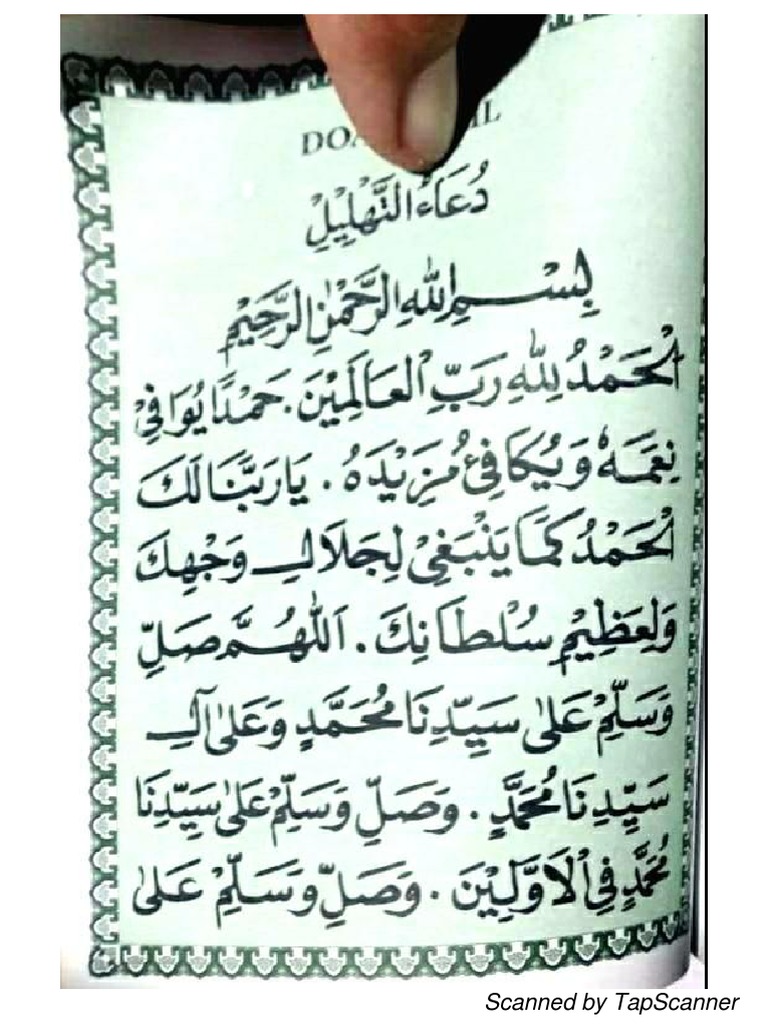 DOA
دُعَاءُ التَّهْلِيْلِ
بِسْـــمِ اللهِ الرَّحْمٰنِ الرَّحِيْمِ
اَلْحَمْدُ لِلّٰهِ رَبِّ الْعَالَمِيْنَ. حَمْدًا يُوَافِيْ
نِعَمَهُ وَيُكَافِئُ مَزِيْدَهُ. يَارَبَّنَا لَكَ
الْحَمْدُ كَمَا يَنْبَغِيْ لِجَلَالِــ وَجْهِكَ
وَلِعَظِيْمِ سُلْطَانِكَ. اَللّٰهُــمَّ صَلِّ
وَسَلِّمْ عَلٰى سَيِّدِنَا مُحَمَّدٍ وَعَلٰى اٰلِــ
سَيِّدِنَا مُحَمَّدٍ. وَصَلِّ وَسَلِّمْ عَلٰى سَيِّدِنَا
مُحَمَّدٍ فِي الْاَوَّلِيْنَ. وَصَلِّ وَسَلِّمْ عَلٰى
Scanned by TapScanner